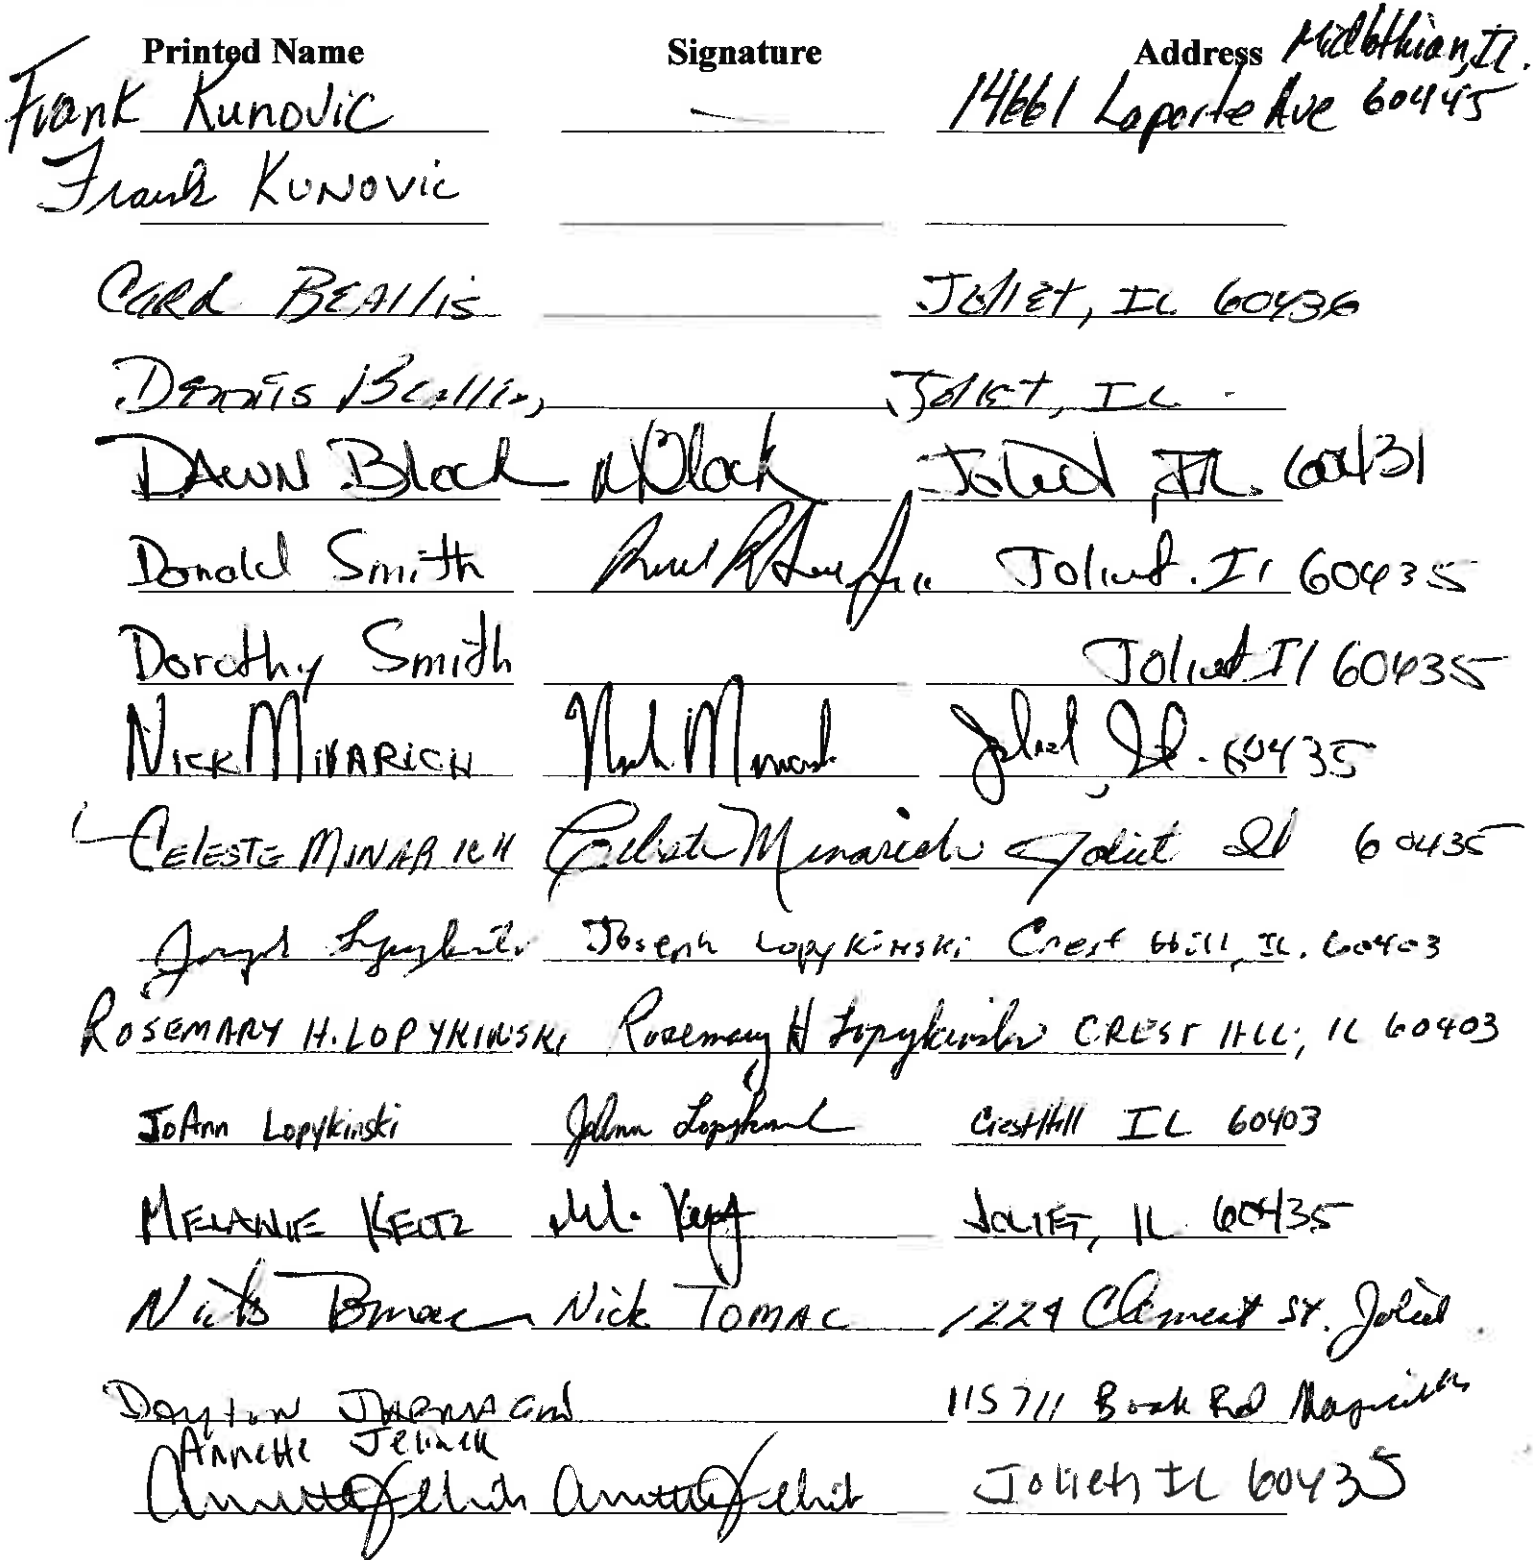 Printed Name Signature Address Midlothian, IL.
Frank Kunovic 14661 Laporte Ave 60445
Frank KUNOVIC
BEALLIS JOLIET, IL 60436
Dennis Beallis, JOLIET, IL
DAWN Block Block Joliet, IL. 60431
Donald Smith Joliet. Il 60435
Dorothy Smith Joliet Il 60435
NICK MINARICH Nick Minarich Joliet, Il. 60435
CELESTE MINARICH Celeste Minarich Joliet Il 60435
Joseph Lopykinski Joseph Lopykinski Crest Hill, IL. 60403
ROSEMARY H. LOPYKINSKI Rosemary H Lopykinski CREST HILL, IL 60403
JoAnn Lopykinski JoAnn Lopykinski Crest Hill IL 60403
MELANIE KEITZ M. JOLIET, IL 60435
Nick TOMAC 1224 Clement St. Joliet
Dayton Rd
Annette Jelinek
Annette Jelinek Annette Jelinek Joliet, IL 60435